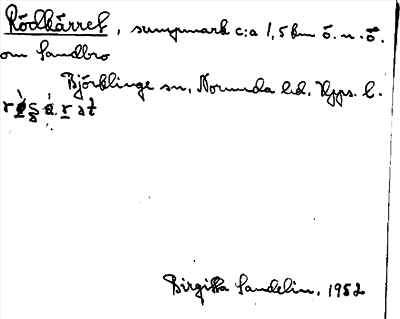 Rödkärret, sumpmark c:a 1,5 km ö. n. ö.
om Sandbro
Björklinge sn, Norunda hd, Upps. l.
Birgitta Sandelin, 1952